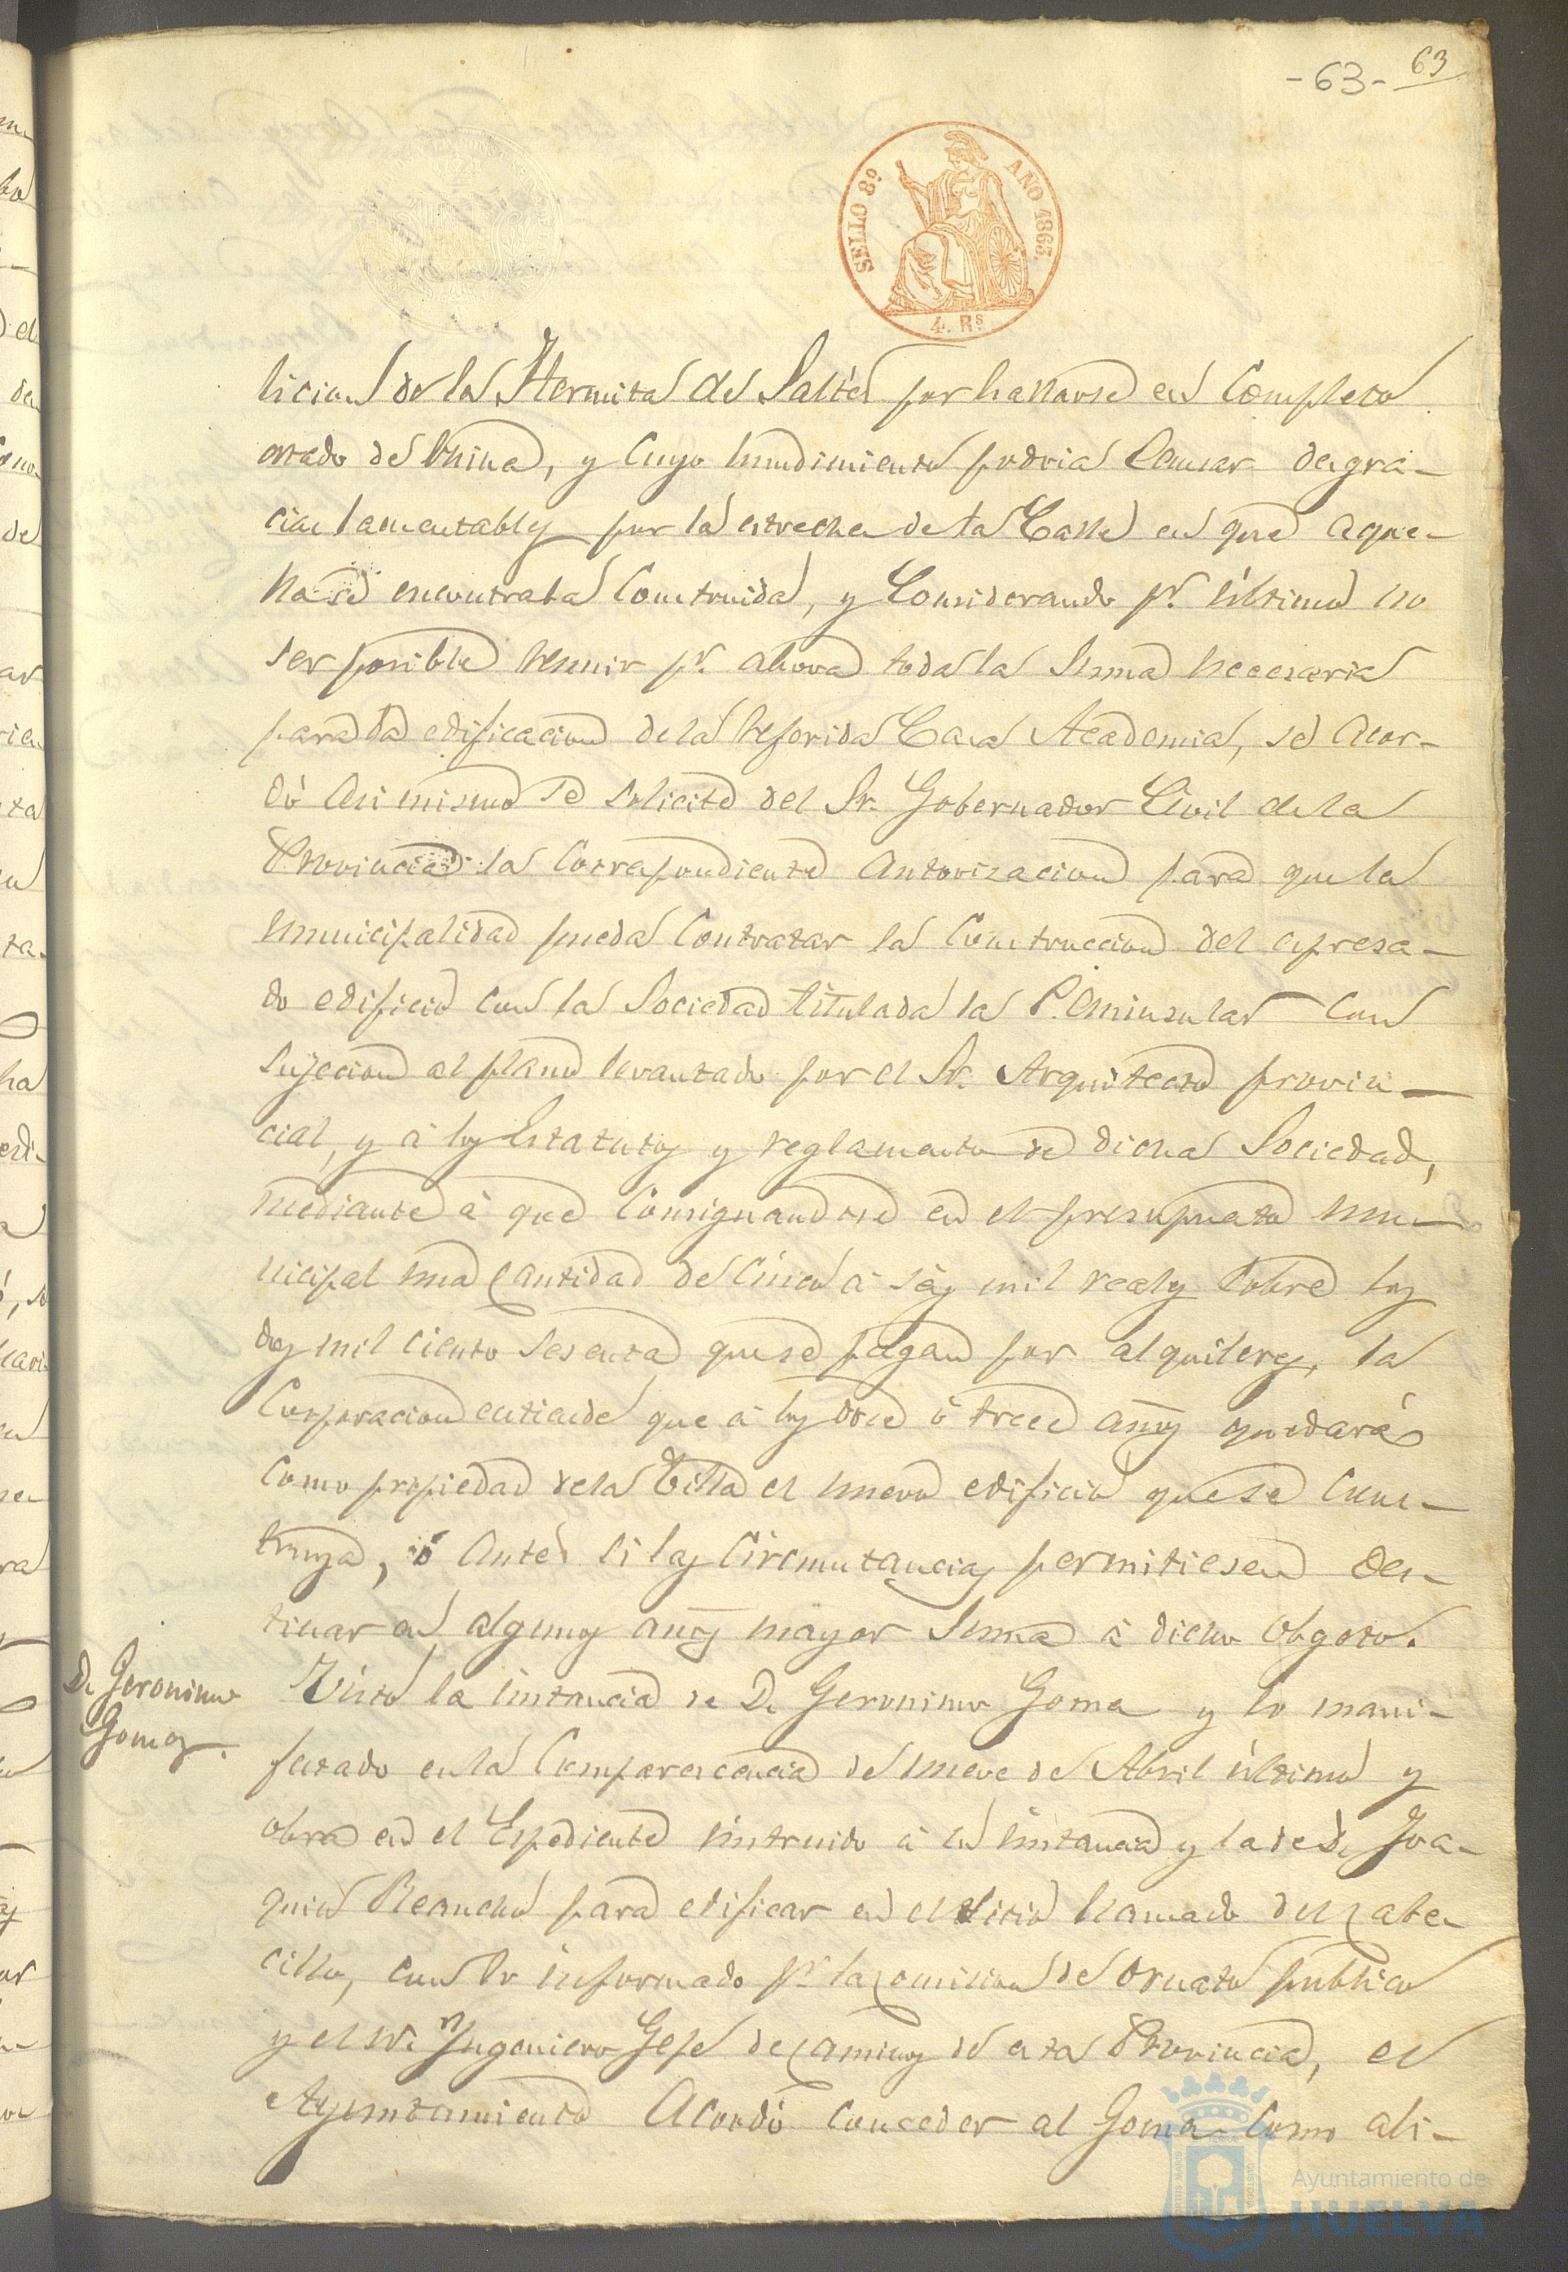 -63- 63
SELLO 8º AÑO 1863.
4. Rs
licion de la Hermita de Saltés por hallarse en Completo
estado de ruina, y cuyo hundimiento podria causar desgra-
cias lamentables por la estrechez de la Calle en que aque-
lla se encontraba Construida, y Considerando pr. último no
ser posible reunir pr. ahora toda la suma necesaria
para la edificacion de la referida Casa Academia, se acor-
dó asi mismo se solicite del Sr. Gobernador Civil de la
Provincia la Correspondiente autorizacion para que la
municipalidad pueda Contratar la Construccion del espresa-
do edificio con la Sociedad titulada la Peninsular con
sujecion al plano levantado por el Sr. Arquitecto provin-
cial, y á los Estatutos y reglamento de dicha Sociedad,
mediante á que Consignandose en el presupuesto mu-
nicipal una cantidad de cinco á seis mil reales sobre los
dos mil ciento sesenta que se pagan por alquileres, la
Corporacion entiende que á los doce ó trece años quedará
como propiedad de la Villa el nuevo edificio que se cons-
truya, ó antes si las circunstancias permitiesen des-
tinar en algunos años mayor suma á dicho obgeto.
D. Geronimo
Gomez.
Vista la instancia de D. Geronimo Gomez y lo mani-
festado en la Comparescencia de nueve de Abril último y
obra en el Espediente instruido á su instancia y la de D. Joa-
quin para edificar en el sitio llamado del Cabe-
cillo, con lo informado pr. la comision de ornato público
y el Sr. Yngeniero Gefe de caminos de esta Provincia, el
Ayuntamiento Acordó conceder al Gomez como ali-
Ayuntamiento de
HUELVA